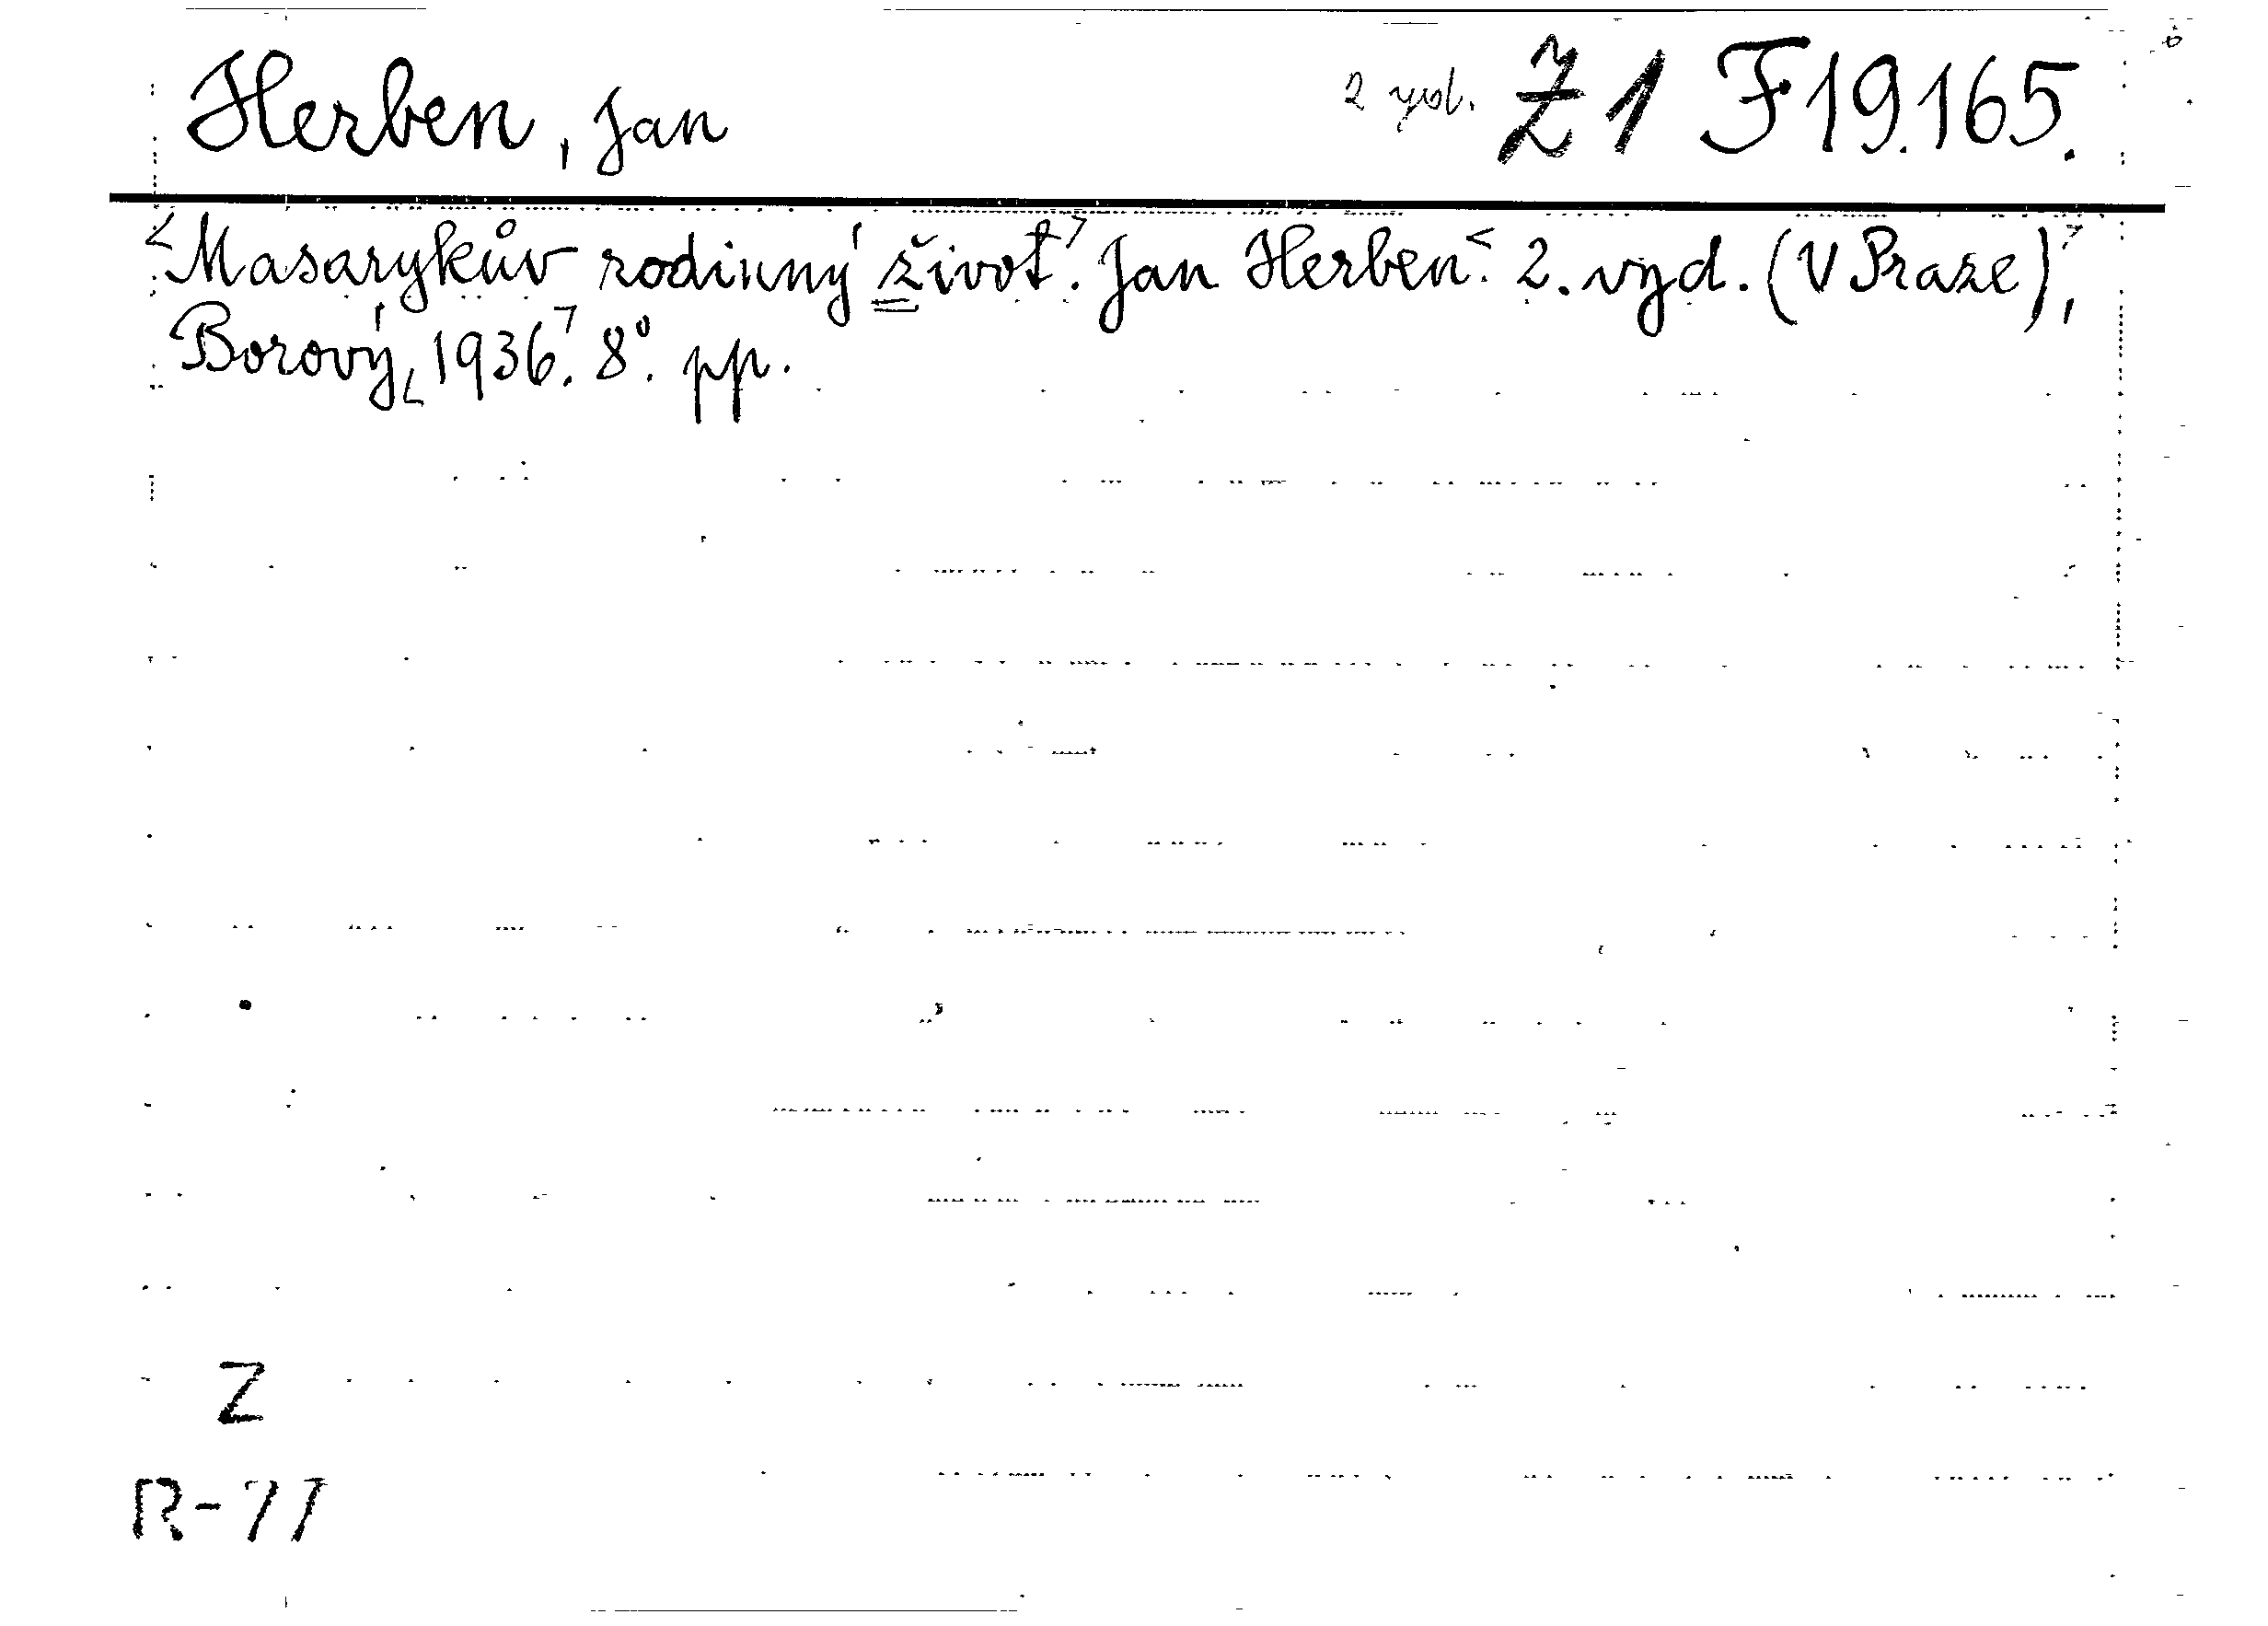 Herben, Jan 2 vyd. Ž 1 F 19.165.
Masarykův rodinný život. Jan Herben. 2. vyd. (V Praze),
Borový, 1936. 8°. pp.
Z
R-77